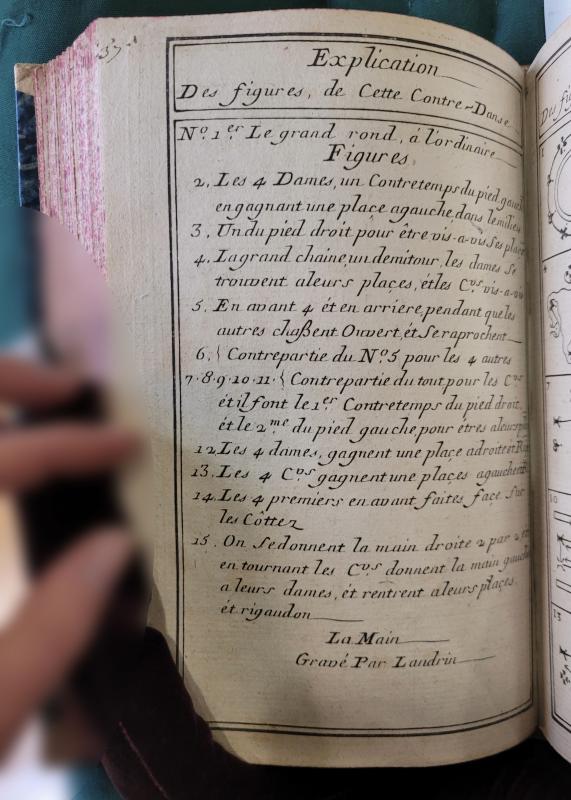 37
Explication
Des figures, de Cette Contre-Danse
N.º 1.er Le grand rond, á l'ordinaire
Figures
2, Les 4 Dames, un Contretemps du pied gauche
en gagnant une place agauche, dans le milieu
3, Un du pied droit pour être vis-a-vis ses places
4, La grand chaine, un demitour, les dames Se
trouvent aleurs places, ét les C.vs vis-a-vis
5, En avant 4 ét en arriere, pendant que les
autres chaßent Ouvert, ét Se raprochent
6, { Contrepartie du N.º 5 pour les 4 autres
7.8.9.10.11. { Contrepartie du tout, pour les C.vs
ét il font le 1.er Contretemps du pied droit,
ét le 2.me du pied gauche, pour étres aleurs
12, Les 4 dames, gagnent une place adroite ét
13, Les 4 C.vs gagnent une plaçes agauche ét
14, Les 4 premiers en avant faites façe Sur
les Côttez
15, On Se donnent la main droite 2 par 2, ét
en tournant les C.vs donnent la main gauche
a leurs dames, ét rentrent aleurs plaçes.
ét rigaudon
La Main
Gravé Par Landrin
Des fi